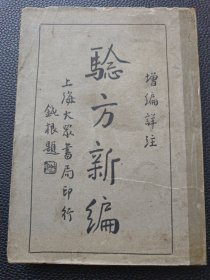 增編詳註
驗方新編
上海大衆書局印行
鈍根題